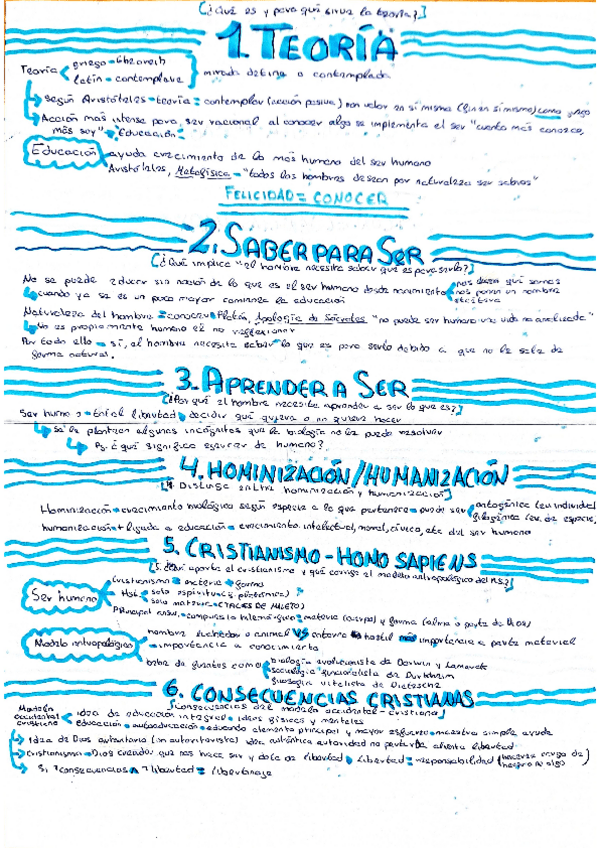 [¿Qué es y para qué sirve la teoría?]
1. TEORÍA
Teoría griego = theorein
latín = contemplare
mirada detina o contemplada
según Aristóteles = teoría = contemplar (acción pasiva) con valor en sí misma (fin en sí mismo) como
Acción más intensa para, ser racional al conocer algo se implementa el ser "cuanto más conozco,
más soy" = Educación
Educación ayuda crecimiento de lo más humano del ser humano
Aristóteles, Metafísica = "todos los hombres desean por naturaleza ser sabios"
FELICIDAD = CONOCER
2. SABER PARA SER
[¿Qué implica "el hombre necesita saber que es para serlo?]
No se puede educar sin noción de lo que es el ser humano desde nacimiento nos dicen qué somos
nos ponen un nombre
etcétera
cuando ya se es un poco mayor comienza la educación
Naturaleza del hombre = conocer = Platón, Apología de Sócrates "no puede ser humano una vida no analizada"
No es propiamente humano el no reflexionar
Por todo ello = sí, el hombre necesita saber lo que es para serlo debido a que no le sale de
forma natural.
3. APRENDER A SER
[¿Por qué el hombre necesita aprender a ser lo que es?]
Ser humano = Ente libertad = decidir qué quiera o no quiera hacer
se le plantean algunas incógnitas que la biología no le puede resolver
Pj. ¿qué significa ejercer de humano?
4. HOMINIZACIÓN/HUMANIZACIÓN
[4. Distingue entre hominización y humanización]
Hominización = crecimiento biológico según especie a la que pertenece = puede ser ontogénica (ev. individual
filogénica (ev. de especie)
humanización = ligada a educación = crecimiento intelectual, moral, cívica, etc del ser humano
5. CRISTIANISMO - HOMO SAPIENS
[5. ¿Qué aporta el cristianismo y qué corrige el modelo antropológico del H.S?]
Ser humano cristianismo = materia + forma
Hist. solo espíritu (g. platónica)
solo materia = (TALES DE MILETO)
Principal = materia (cuerpo) y forma (alma o parte de Dios)
Modelo antropológico hombre luchador o animal VS entorno hostil más importancia a parte material
= importancia a conocimiento
biología evolucionista de Darwin y Lamarck
sociología funcionalista de Durkheim
filosofía vitalista de Nietzsche
6. CONSECUENCIAS CRISTIANAS
[Consecuencias del modelo occidental - cristiano]
Modelo occidental cristiano idea de educación integral = ideas físicas y mentales
educación = autoeducación = educando elemento principal y mayor esfuerzo = maestro simple ayuda
Idea de Dios autoritario (no autoritarista) una auténtica autoridad no perturba afecta libertad
Cristianismo = Dios creador que nos hace ser y dota de libertad = Libertad = responsabilidad (hacerse cargo de)
Si ≠ consecuencias ^ ≠ libertad = libertinaje